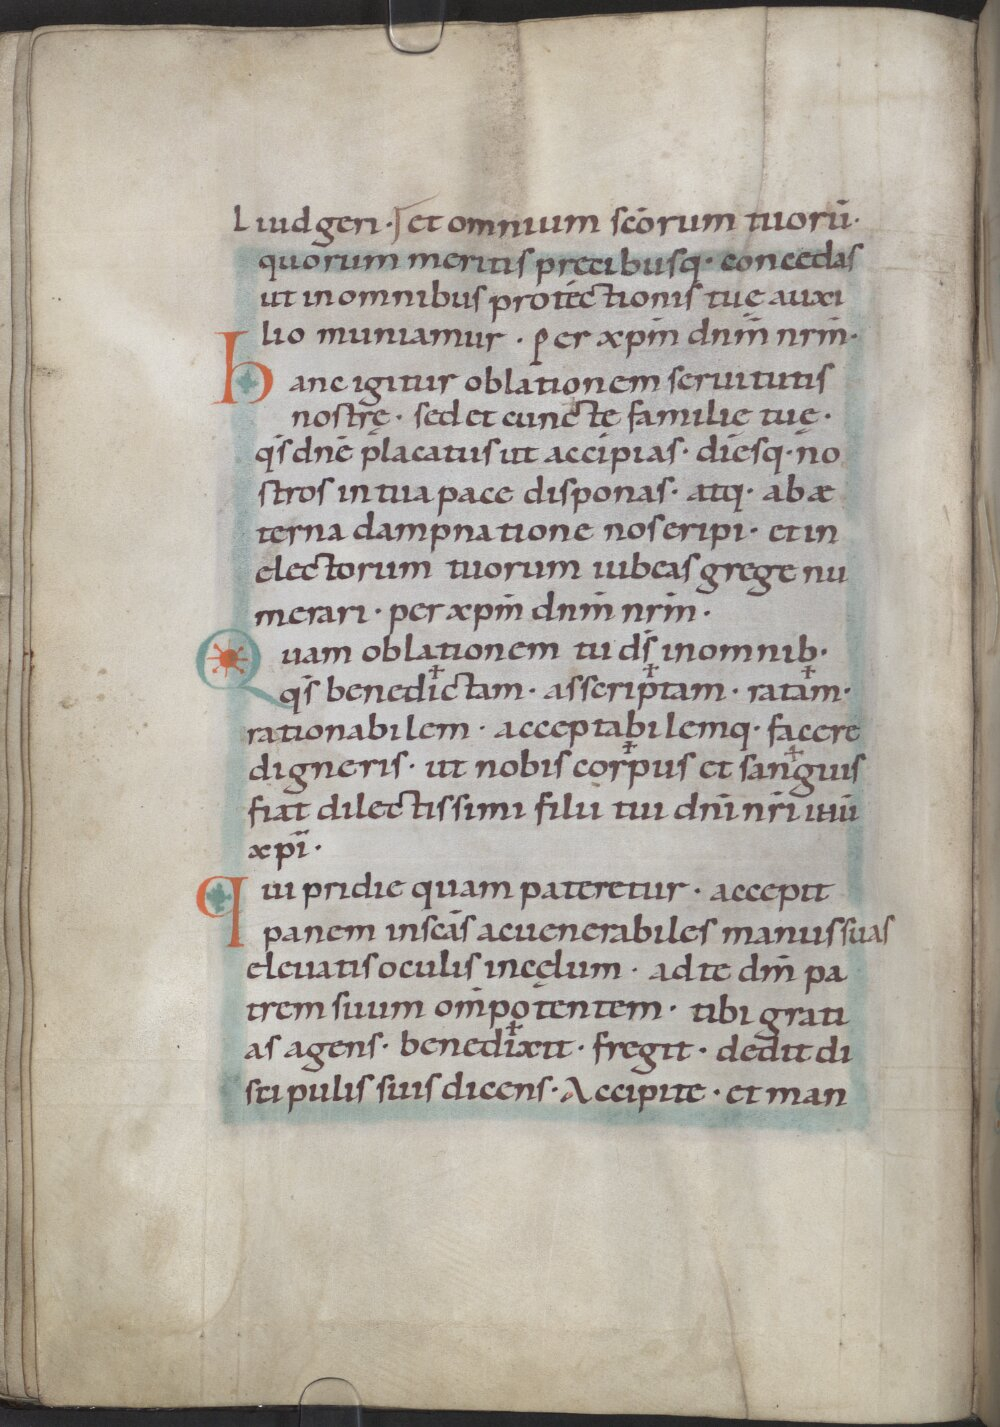 Liudgeri · et omnium scōrum tuorū·
quorum meritis precibusq· concedas
ut in omnibus protectionis tuę auxi
lio muniamur · per xp̄m dn̄m nr̄m·
hanc igitur oblationem seruitutis
nostrę · sed et cunctę familię tuę ·
q̄s dn̄e placatus ut accipias· diesq· no
stros in tua pace disponas· atq· ab æ
terna dampnatione nos eripi· et in
electorum tuorum iubeas grege nu
merari · per xp̄m dn̄m nr̄m ·
Quam oblationem tu ds̄ in omnib·
q̄s bene✝dictam · asscrip✝tam · ra✝tam·
rationabilem · acceptabilemq· facere
digneris· ut nobis cor✝pus et san✝guis
fiat dilectissimi filii tui dn̄i nr̄i ihū
xp̄i ·
qui pridie quam pateretur · accepit
panem in scās ac uenerabiles manus suas
eleuatis oculis in cęlum · ad te dm̄ pa
trem suum om̄ipotentem · tibi grati
as agens· bene✝dixit · fregit · dedit di
scipulis suis dicens· Accipite · et man